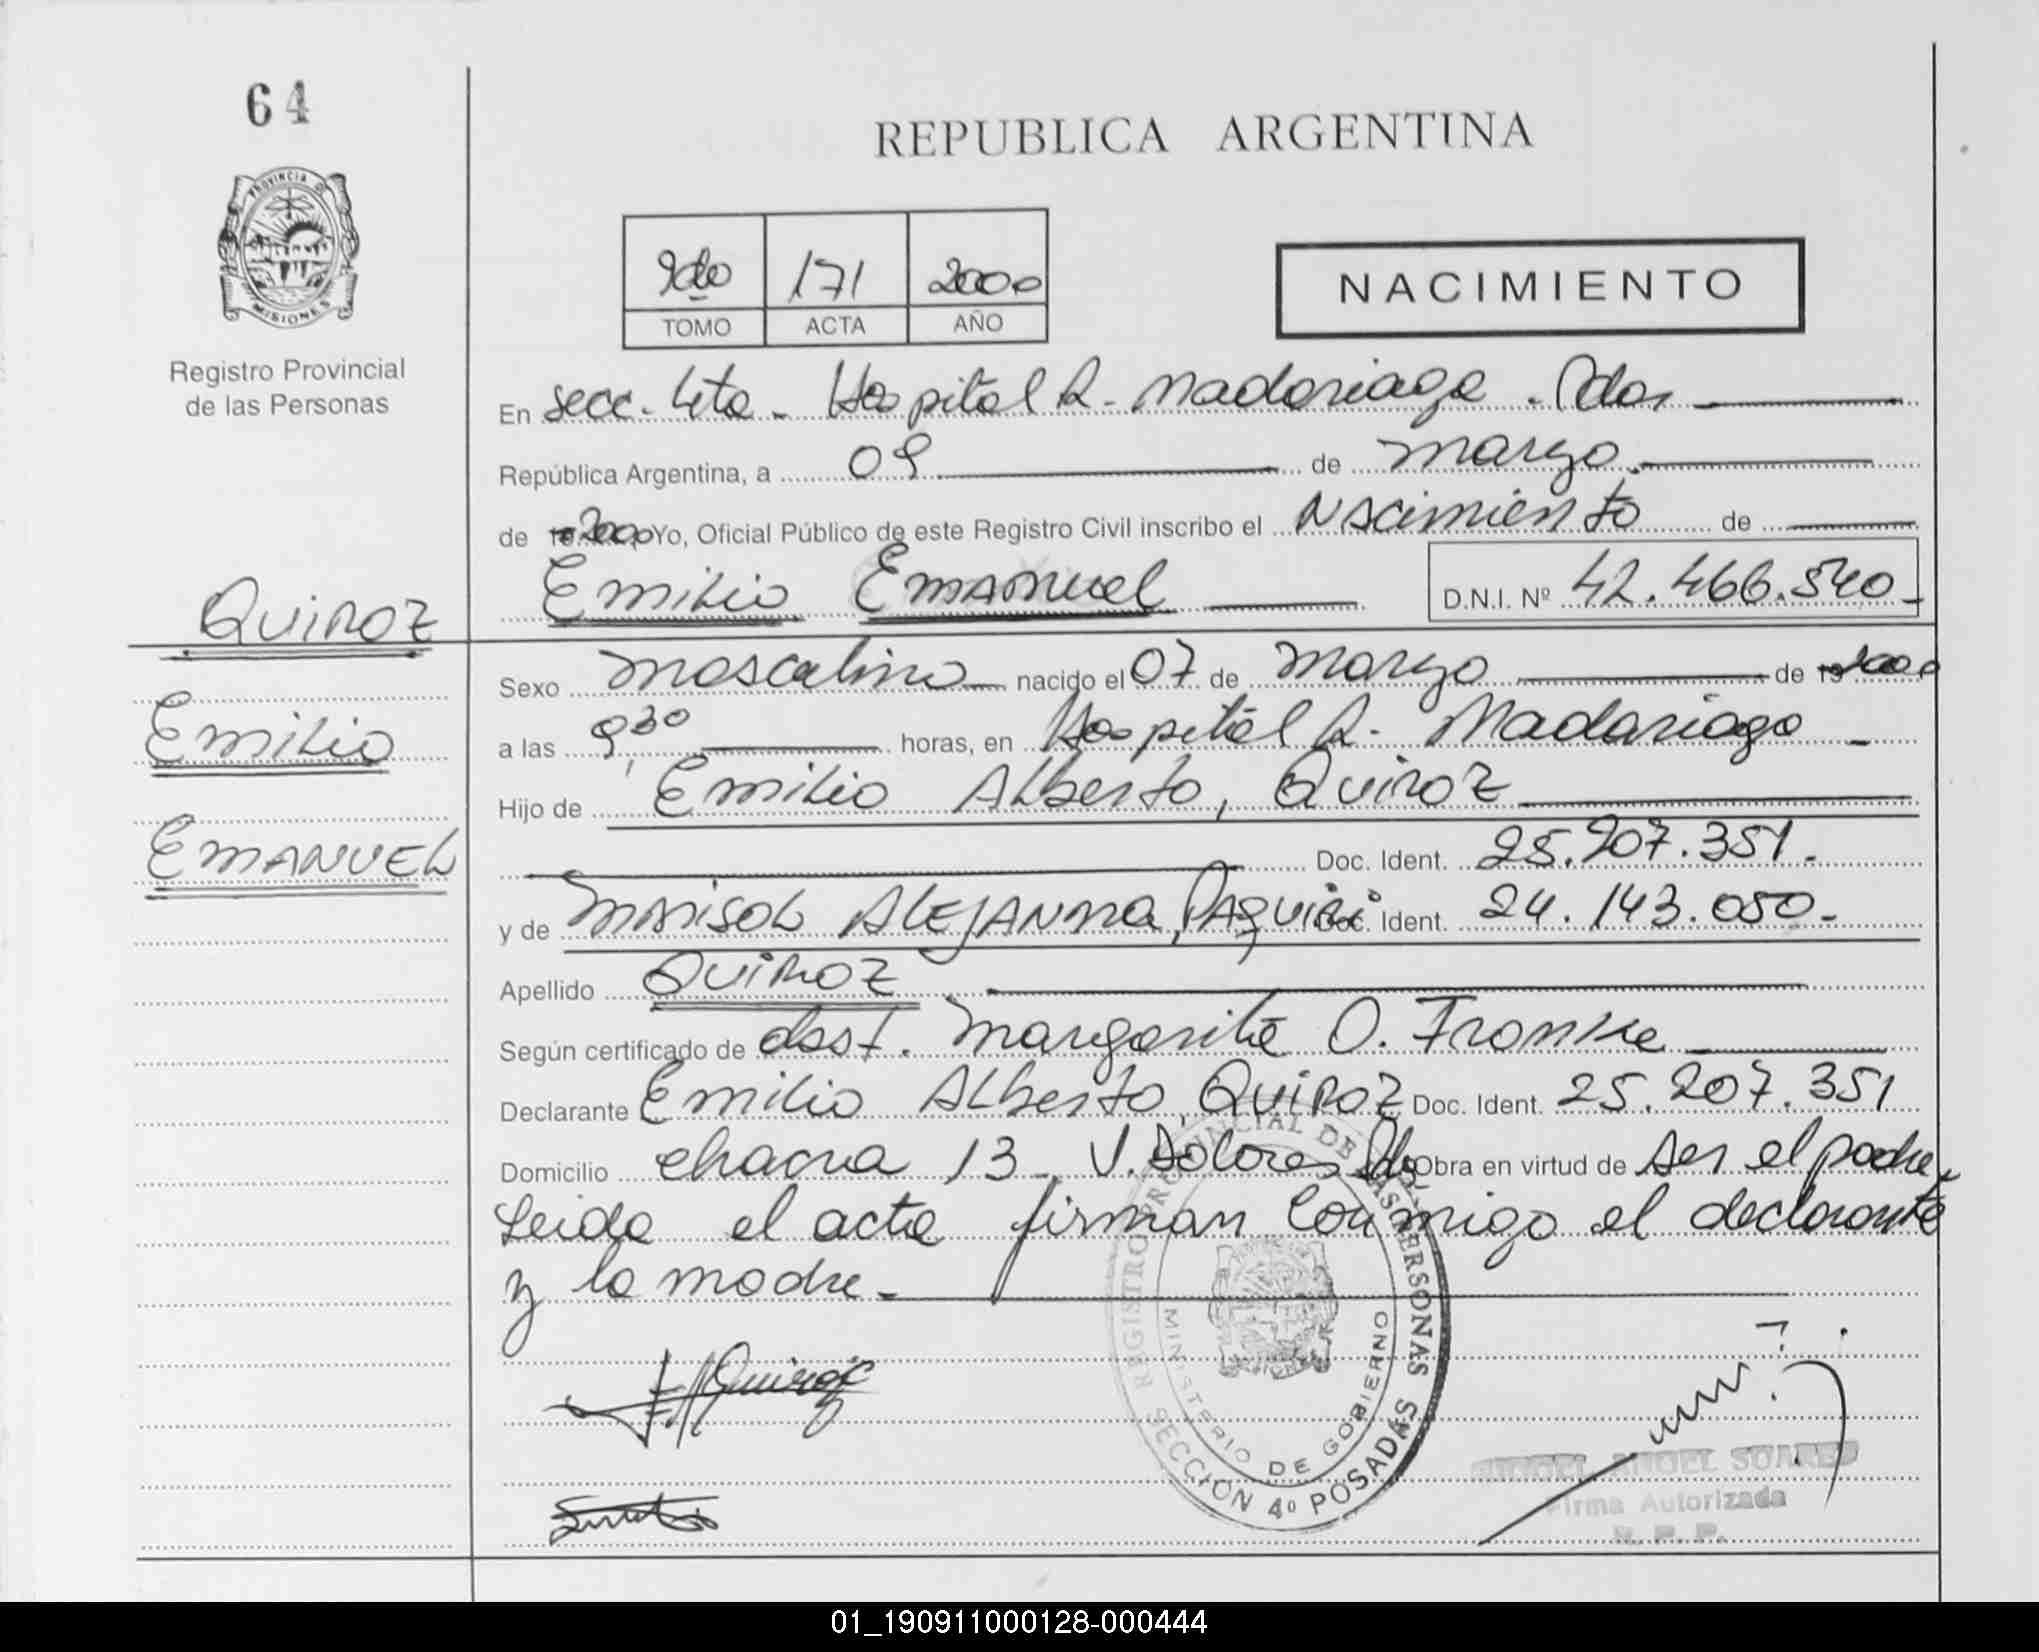 64
PROVINCIA DE
MISIONES
Registro Provincial
de las Personas
REPUBLICA ARGENTINA
2do 171 2000
TOMO ACTA AÑO
NACIMIENTO
En secc. 4ta - Hospital R. Madariaga. Pdas
República Argentina, a 09 de marzo
de 2000 Yo, Oficial Público de este Registro Civil inscribo el Nacimiento de
Emilio Emanuel D.N.I. Nº 42.466.540
Quiroz
Sexo masculino nacido el 07 de marzo de 19 2000
Emilio
a las 9,30 horas, en Hospital R. Madariaga
Hijo de Emilio Alberto, Quiroz
EMANUEL
Doc. Ident. 25.207.351.
y de MARISOL ALEJANDRA, Doc. Ident. 24.143.050.
Apellido QUIROZ
Según certificado de obst. Margarita O. Fronke
Declarante Emilio Alberto, Quiroz Doc. Ident. 25.207.351
Domicilio chacra 13 - V. Dolores Pdas Obra en virtud de ser el padre,
Leida el acta firman conmigo el declarante
y la madre.
REGISTRO PROVINCIAL DE LAS PERSONAS
MINISTERIO DE GOBIERNO
SECCIÓN 4º POSADAS
Quiroz
ANGEL SUAREZ
Firma Autorizada
R. P. P.
01_190911000128-000444